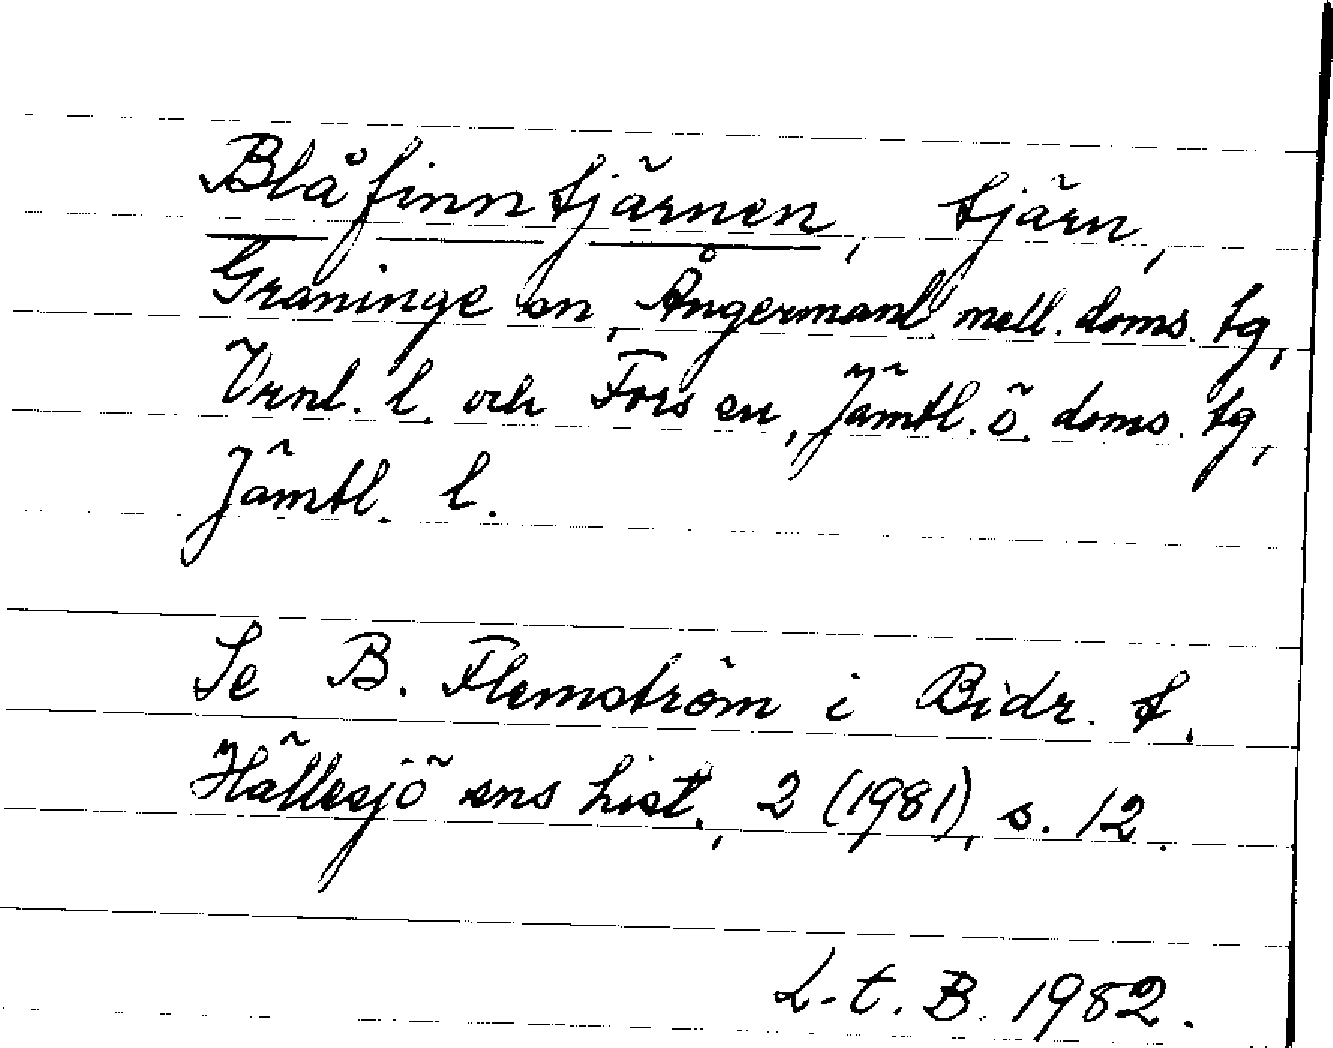 Blåfinntjärnen, tjärn,
Graninge sn, Ångermanl. mell. doms. tg,
Vrnl. l. och Fors sn, Jämtl. ö. doms. tg,
Jämtl. l.
Se B. Flemström i Bidr. t.
Hällesjö sns hist., 2 (1981), s. 12.
L-t. B. 1982.